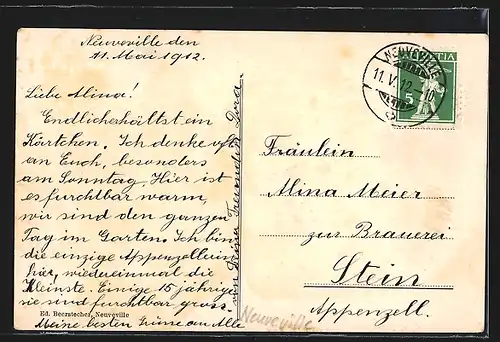 Neuveville den
11. Mai 1912.
Liebe Mina!
Endlich erhältst ein
Kärtchen. Ich denke oft
an Euch, besonders
am Sonntag. Hier ist
es furchtbar warm,
wir sind den ganzen
Tag im Garten. Ich bin
die einzige Appenzellerin
hier, wiedereinmal die
Kleinste. Einige 15 jährige
sie sind furchtbar gross.
Meine besten Grüsse an Alle
von Deiner Freundin Dora.
Ed. Beerstecher, Neuveville
NEUVEVILLE
11. V. 12
HELVETIA
5
Fräulein
Mina Meier
zur Brauerei
Stein
Appenzell.
Neuveville